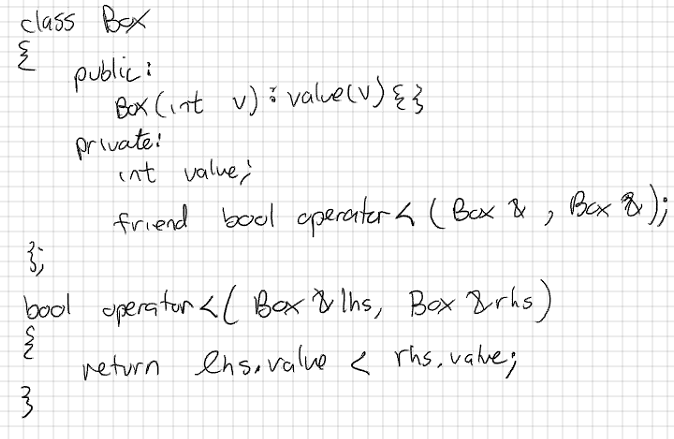 class Box
{
public:
Box(int v) : value(v) {}
private:
int value;
friend bool operator< (Box & , Box &);
};
bool operator<( Box &lhs, Box &rhs)
{
return lhs.value < rhs.value;
}